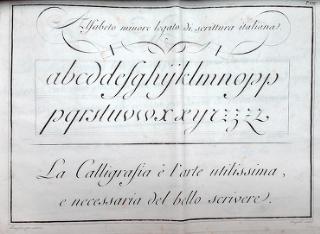 Alfabeto minore legato di scrittura italiana.
abcddefghijklmnopp
pqrstuvwxxyzzzz
La Calligrafia è l'arte utilissima,
e necessaria del bello scrivere.